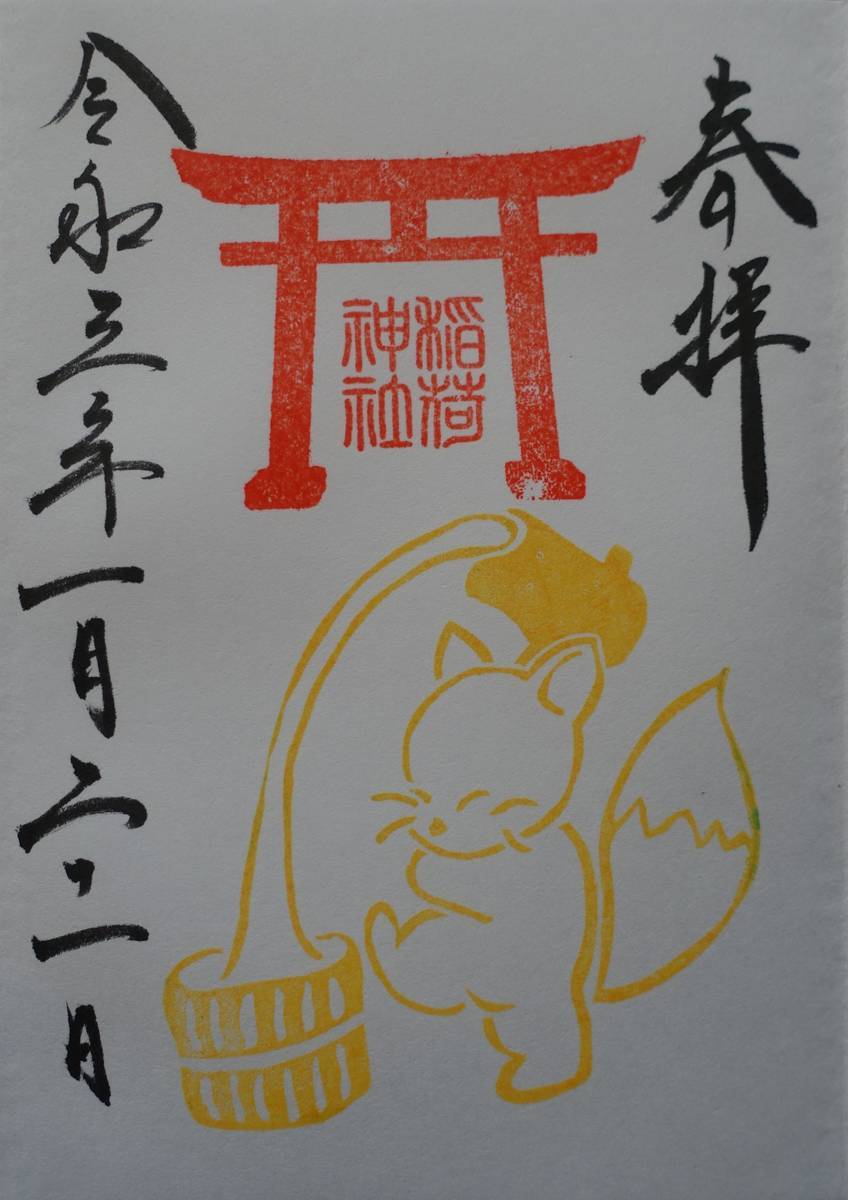 奉拝
稲荷
神社
令和三年一月二二日